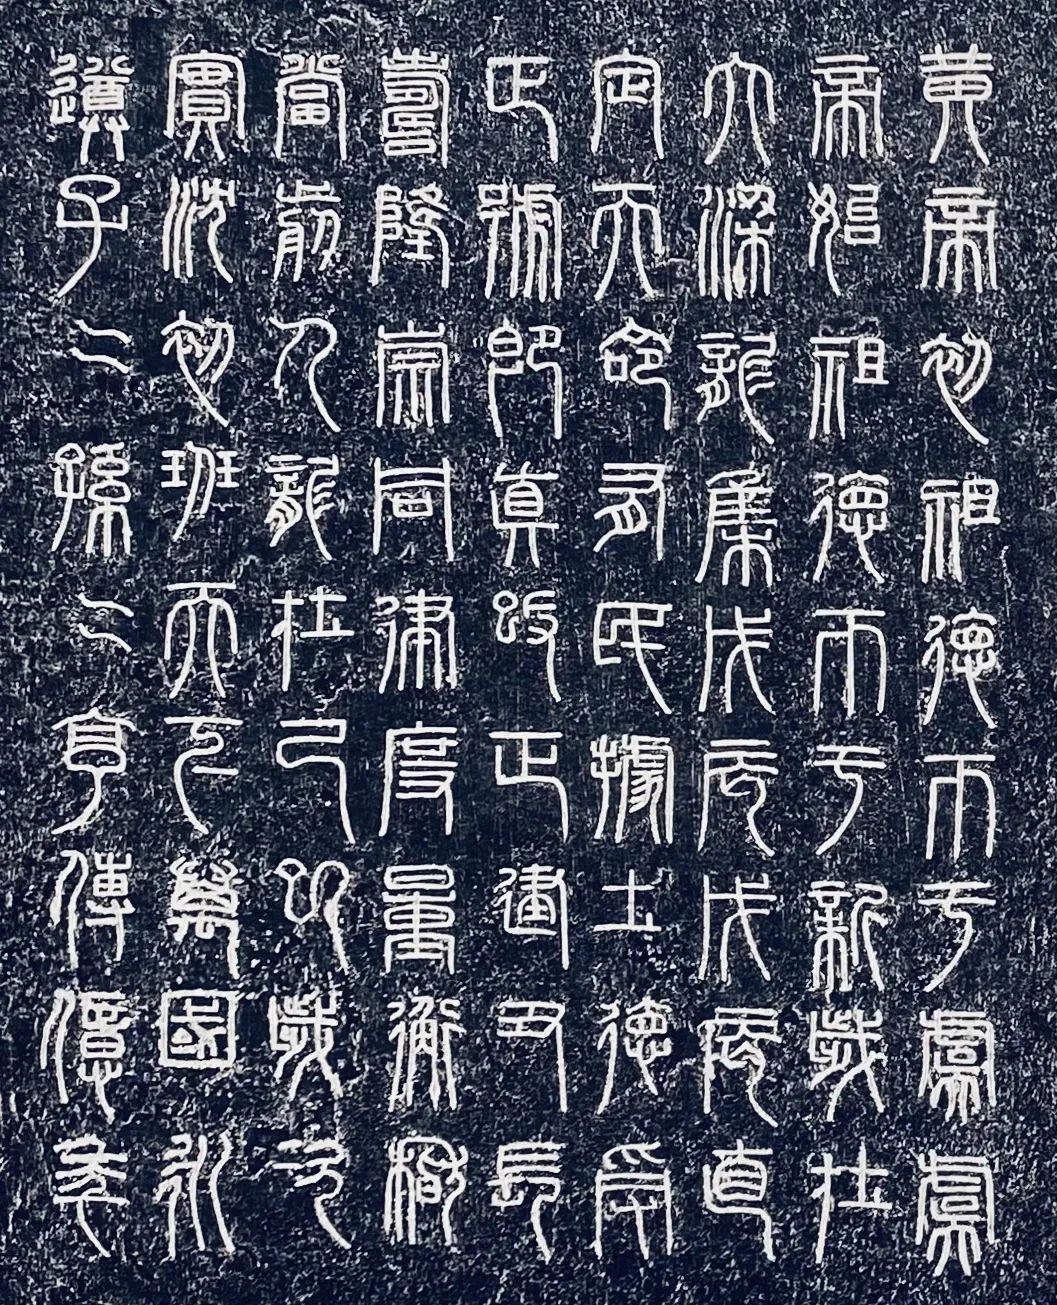 黃帝初祖德帀于虞虞
帝始祖德帀于新歲在
大梁龍集戊辰戊辰直
定天命有民據土德受
正號即真改正建丑長
壽隆崇同律度量衡稽
當前人龍在己巳歲次
實沈初班天下萬國永
遵子二孫二亨傳億年